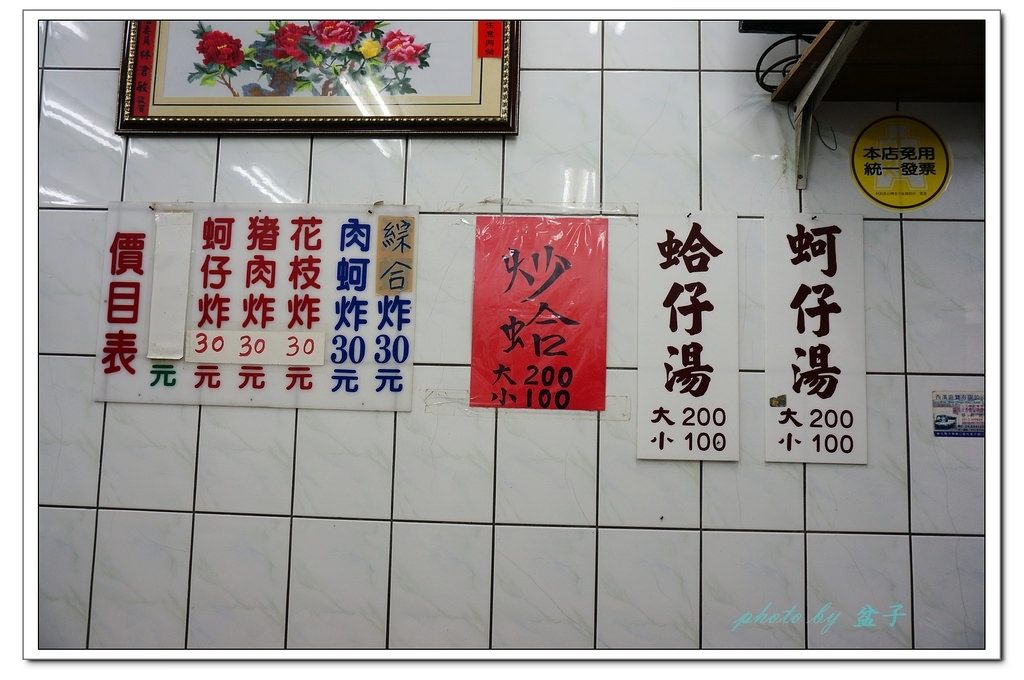 生意興榮
價目表
元
蚵仔炸30元
猪肉炸30元
花枝炸30元
肉蚵炸30元
綜合炸30元
炒蛤
大200
小100
蛤仔湯
大200
小100
蚵仔湯
大200
小100
本店免用
統一發票
photo by 盆子